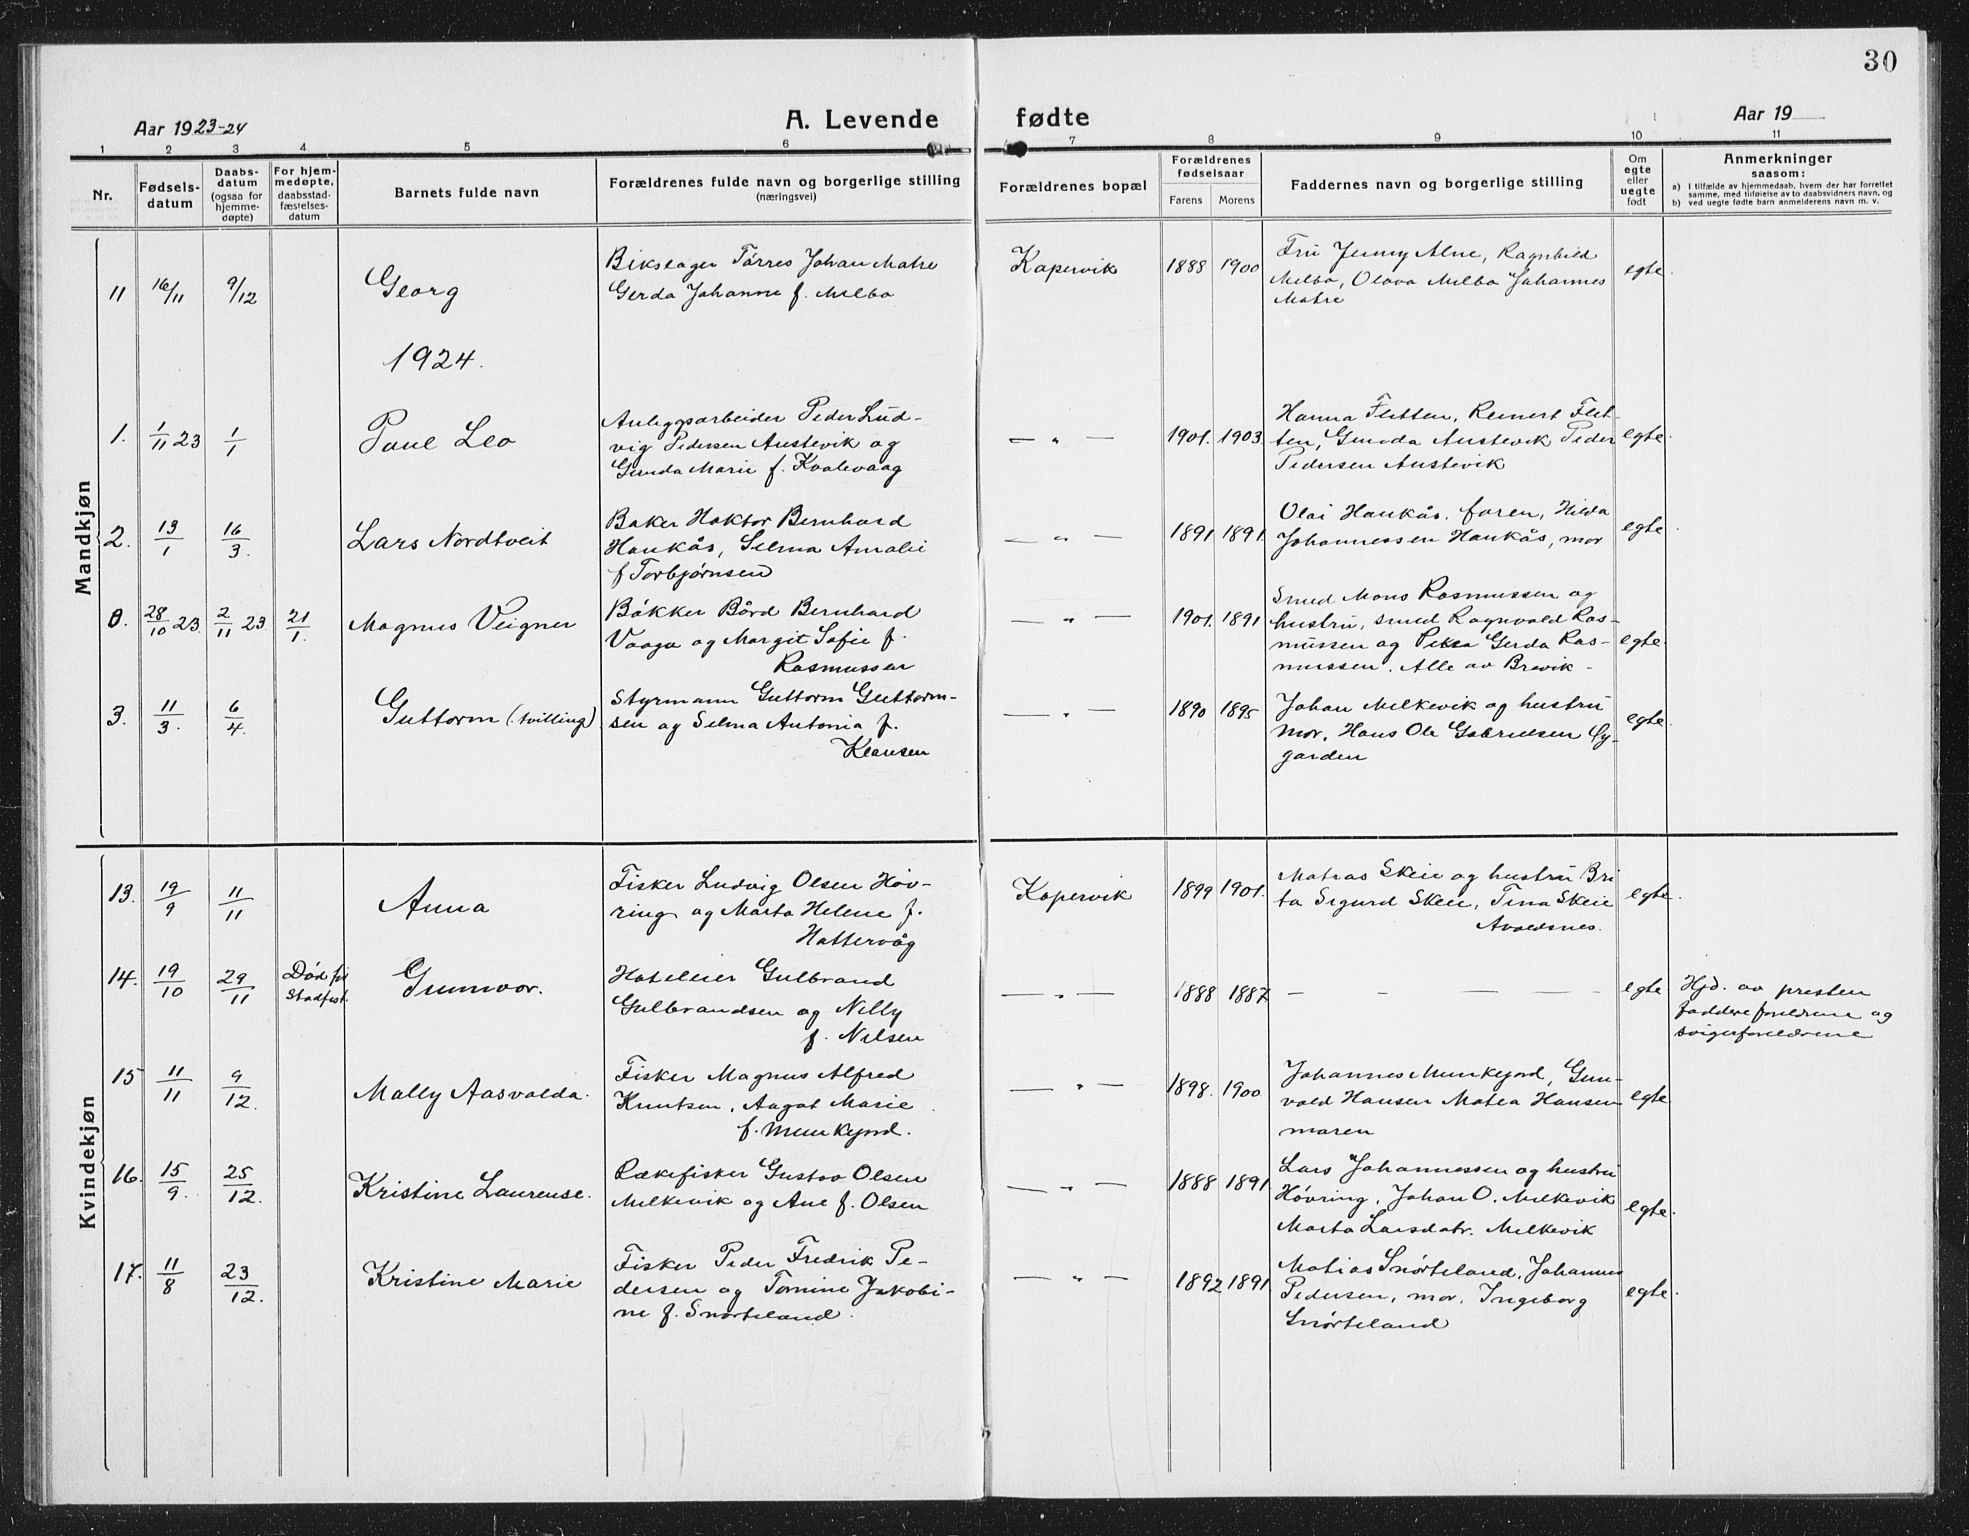 30
Aar 1923-24
A. Levende
fødte
Aar 19
1 2 3 4 5 6 7 8 9 10 11
Nr.
Fødsels-
datum
Daabs-
datum
(ogsaa for
hjemme-
døpte)
For hjem-
medøpte,
daabsstad-
fæstelses-
datum
Barnets fulde navn
Forældrenes fulde navn og borgerlige stilling
(næringsvei)
Forældrenes bopæl
Forældrenes
fødselsaar
Farens
Morens
Faddernes navn og borgerlige stilling
Om
egte
eller
uegte
født
Anmerkninger
saasom:
a) i tilfælde av hjemmedaab, hvem der har forrettet
samme, med tilføielse av to daabsvidners navn, og
b) ved uegte fødte barn anmelderens navn m. v.
Mandkjøn
11 16/11 9/12
Georg
Bikslager Tørres Johan Matre
Gerda Johanne f. Melbo
Kopervik
1888 1900
Fru Jenny Alne, Ragnhild
Melbo, Olava Melbo Johannes
Matre
egte.
1924.
1. 1/11 23 1/1
Paul Leo
Anleggsarbeider Peder Lud-
vig Pedersen Austevik og
Gunda Marie f. Kvalevaag
— " —
1901. 1903.
Hanna Fletten, Reinert Flet-
ten, Gunda Austevik Peder
Pedersen Austevik
egte.
2. 13/1 16/3.
Lars Nordtveit
Baker Haktor Bernhard
Haukås, Selma Amalie
f Torbjørnsen
— " —
1891 1891.
Olai Haukås, faren, Hilda
Johannessen Haukås, mor
egte.
0. 28/10 23. 2/11 23 21/1.
Magnus Veigner
Bøkker Bård Bernhard
Vaaga og Margit Sofie f.
Rasmussen
— " —
1901. 1891
Smed Mons Rasmussen og
hustru, smed Ragnvald Ras-
mussen og Gerda Ras-
mussen. Alle av Brevik -
egte.
3. 11/3. 6/4.
Guttorm (tvilling)
Styrmann Guttorm Guttorm-
sen og Selma Antonia f.
Klausen
— " —
1890 1895
Johan Melkevik og hustru
mor, Hans Ole Gabrielsen Ny-
garden
egte.
Kvindekjøn
13. 19/9 11/11
Anna
Fisker Ludvig Olsen Høv-
ring og Marta Helene f.
Hattervåg
Kopervik
1899 1901.
Matias Skeie og hustru Bri
ta Sigurd Skeie, Tina Skeie
Avaldsnes.
egte.
14. 19/10 29/11 Død før
Stadfest.
Gunnvor.
Hoteleier Gulbrand
Gulbrandsen og Nelly
f. Nilsen
— " —
1888 1887
— - — —
egte
Hjd. av presten
faddere foreldrene og
svigerforeldrene
15 11/11 9/12.
Mally Aasvalda.
Fisker Magnus Alfred
Knutsen, Aagot Marie
f. Munkejord.
— " —
1898. 1900
Johannes Munkejord, Gun-
vald Hansen Matea Hansen
moren
egte
16. 15/9. 25/12.
Kristine Laurense.
Rækefisker Gustav Olsen
Melkevik og Ane f. Olsen
— " —
1888 1891.
Lars Johannessen og hustru
Høvring, Johan O. Melkevik
Marta Larsdatr. Melkevik
egte.
17. 11/8 23/12.
Kristine Marie
Fisker Peder Fredrik Pe-
dersen og Tomine Jakobi-
ne f. Snørteland.
— " —
1892 1891
Matias Snørteland, Johannes
Pedersen, mor, Ingeborg
Snørteland
egte.